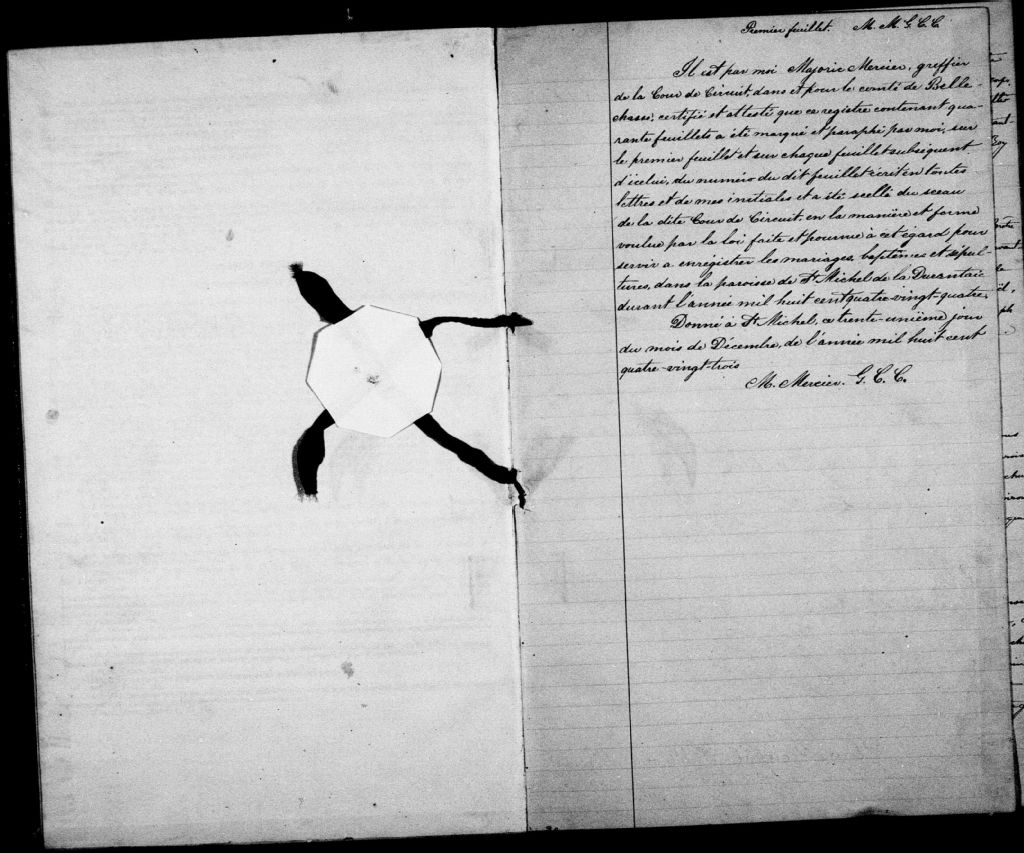 Premier feuillet. M. M. G. C. C.
Il est par moi Majoric Mercier, greffier
de la Cour de Circuit, dans et pour le comté de Belle-
chasse, certifié et attesté que ce registre contenant qua-
rante feuillets a été marqué et paraphé par moi, sur
le premier feuillet et sur chaque feuillet subséquent
d'icelui, du numéro du dit feuillet écrit en toutes
lettres et de mes initiales et a été scellé du sceau
de la dite Cour de Circuit, en la manière et forme
voulue par la loi faite et pourvue à cet égard pour
servir a enregistrer les mariages, baptêmes et sépul-
tures, dans la paroisse de St Michel de la Durantaie
durant l'année mil huit cent quatre-vingt-quatre.
Donné à St Michel, ce trente-unième jour
du mois de Décembre, de l'année mil huit cent
quatre-vingt-trois
M. Mercier. G. C. C.